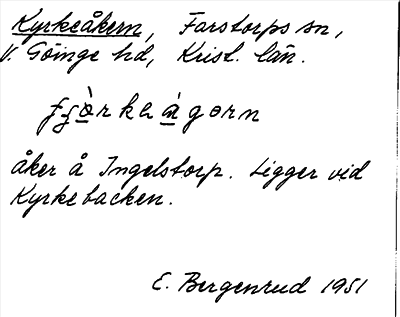 Kyrkeåkern, Farstorps sn,
V. Göinge hd, Krist. län.
åker å Ingelstorp. Ligger vid
Kyrkebacken.
E. Bergenrud 1951